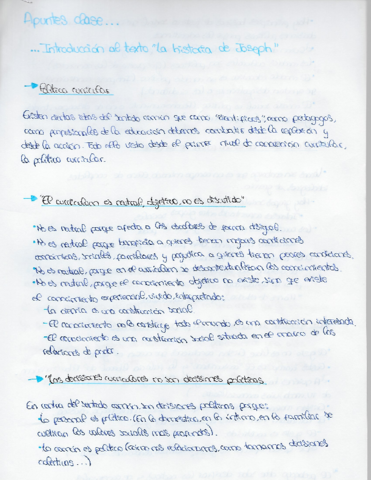 Apuntes clase...
...Introducción al texto "la historia de Joseph"
Política curricular
Existen ciertas ideas del sentido común que como "científicos", como pedagogos,
como profesionales de la educación debemos combatir desde la reflexión y
desde la acción. Todo ello visto desde el primer nivel de concreción curricular,
la política curricular.
"El curriculum es natural, objetivo, no es discutido"
*No es natural porque afecta a los escolares de forma desigual.
*No es natural porque beneficia a quienes tienen mejores condiciones
económicas, sociales, familiares y perjudica a quienes tienen peores condiciones.
*No es natural, porque en el curriculum se descontextualizan los conocimientos.
*No es natural, porque el conocimiento objetivo no existe, sino que existe
el conocimiento experiencial, vivido, interpretado:
- La ciencia es una construcción social
- El conocimiento no lo construye todo el mundo, es una construcción interesada.
- El conocimiento es una construcción social situada en el marco de las
relaciones de poder.
"Las decisiones curriculares no son decisiones políticas.
En contra del sentido común, son decisiones políticas porque:
- Lo personal es político. (En lo doméstico, en lo íntimo, en lo familiar se
cultivan los valores sociales más profundos).
- Lo común es político (cómo nos relacionamos, como tomamos decisiones
colectivas...)